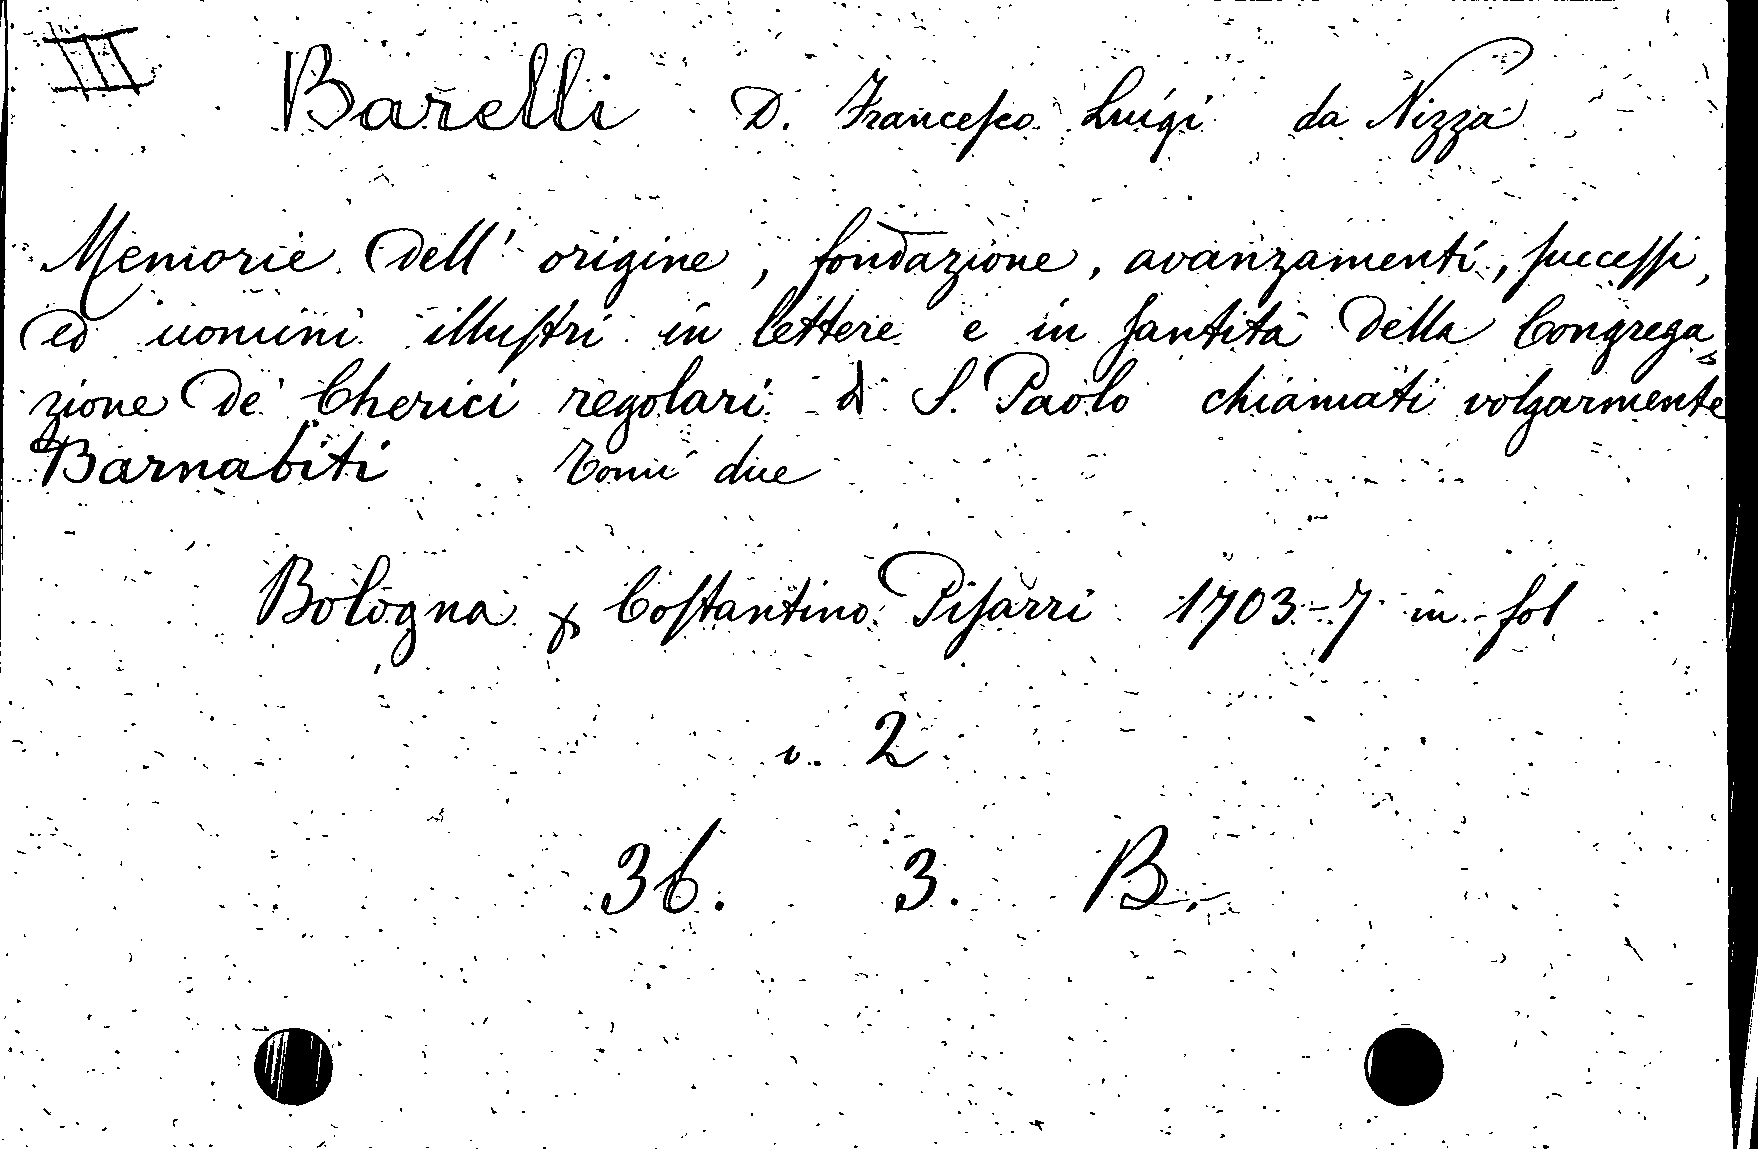 III Barelli D. Francesco Luigi da Nizza
Memorie dell' origine, fondazione, avanzamenti, successi,
ed uomini illustri in lettere e in santità della Congrega=
zione de' Cherici regolari di S. Paolo chiamati volgarmente
Barnabiti Tomi due
Bologna p Costantino Pisarri 1703-7 in fol
v. 2
36. 3. B.